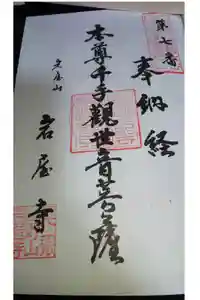 第七番
奉納経
本尊千手觀世音菩薩
岩屋寺